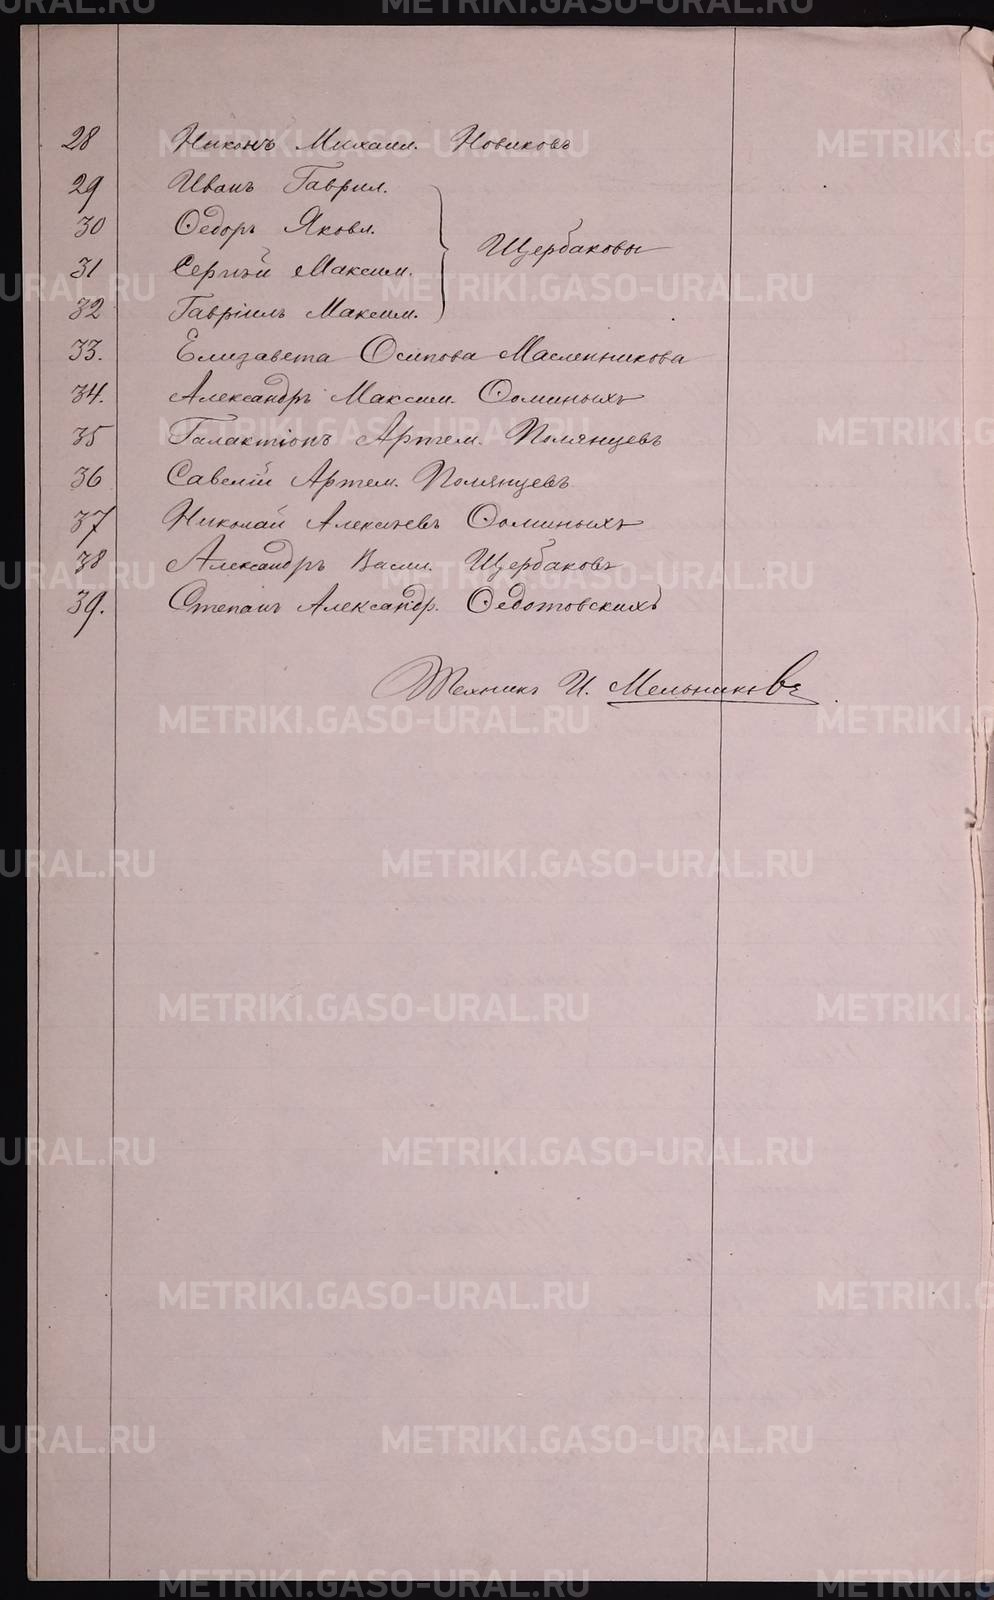 28 Никонъ Михаил. Новиковъ
29 Иванъ Гаврил.
30 Ѳедоръ Яковл.
Щербаковы
31 Сергѣй Максим.
32 Гавріилъ Максим.
33. Елизавета Осипова Масленникова
34. Александръ Максим. Ѳоминыхъ
35 Галактіонъ Артем. Полянцевъ
36 Савелій Артем. Полянцевъ
37 Николай Алексѣевъ Ѳоминыхъ
38 Александръ Васил. Щербаковъ
39. Степанъ Александр. Ѳедотовскихъ
Техникъ И. Мельниковъ
METRIKI.GASO-URAL.RU